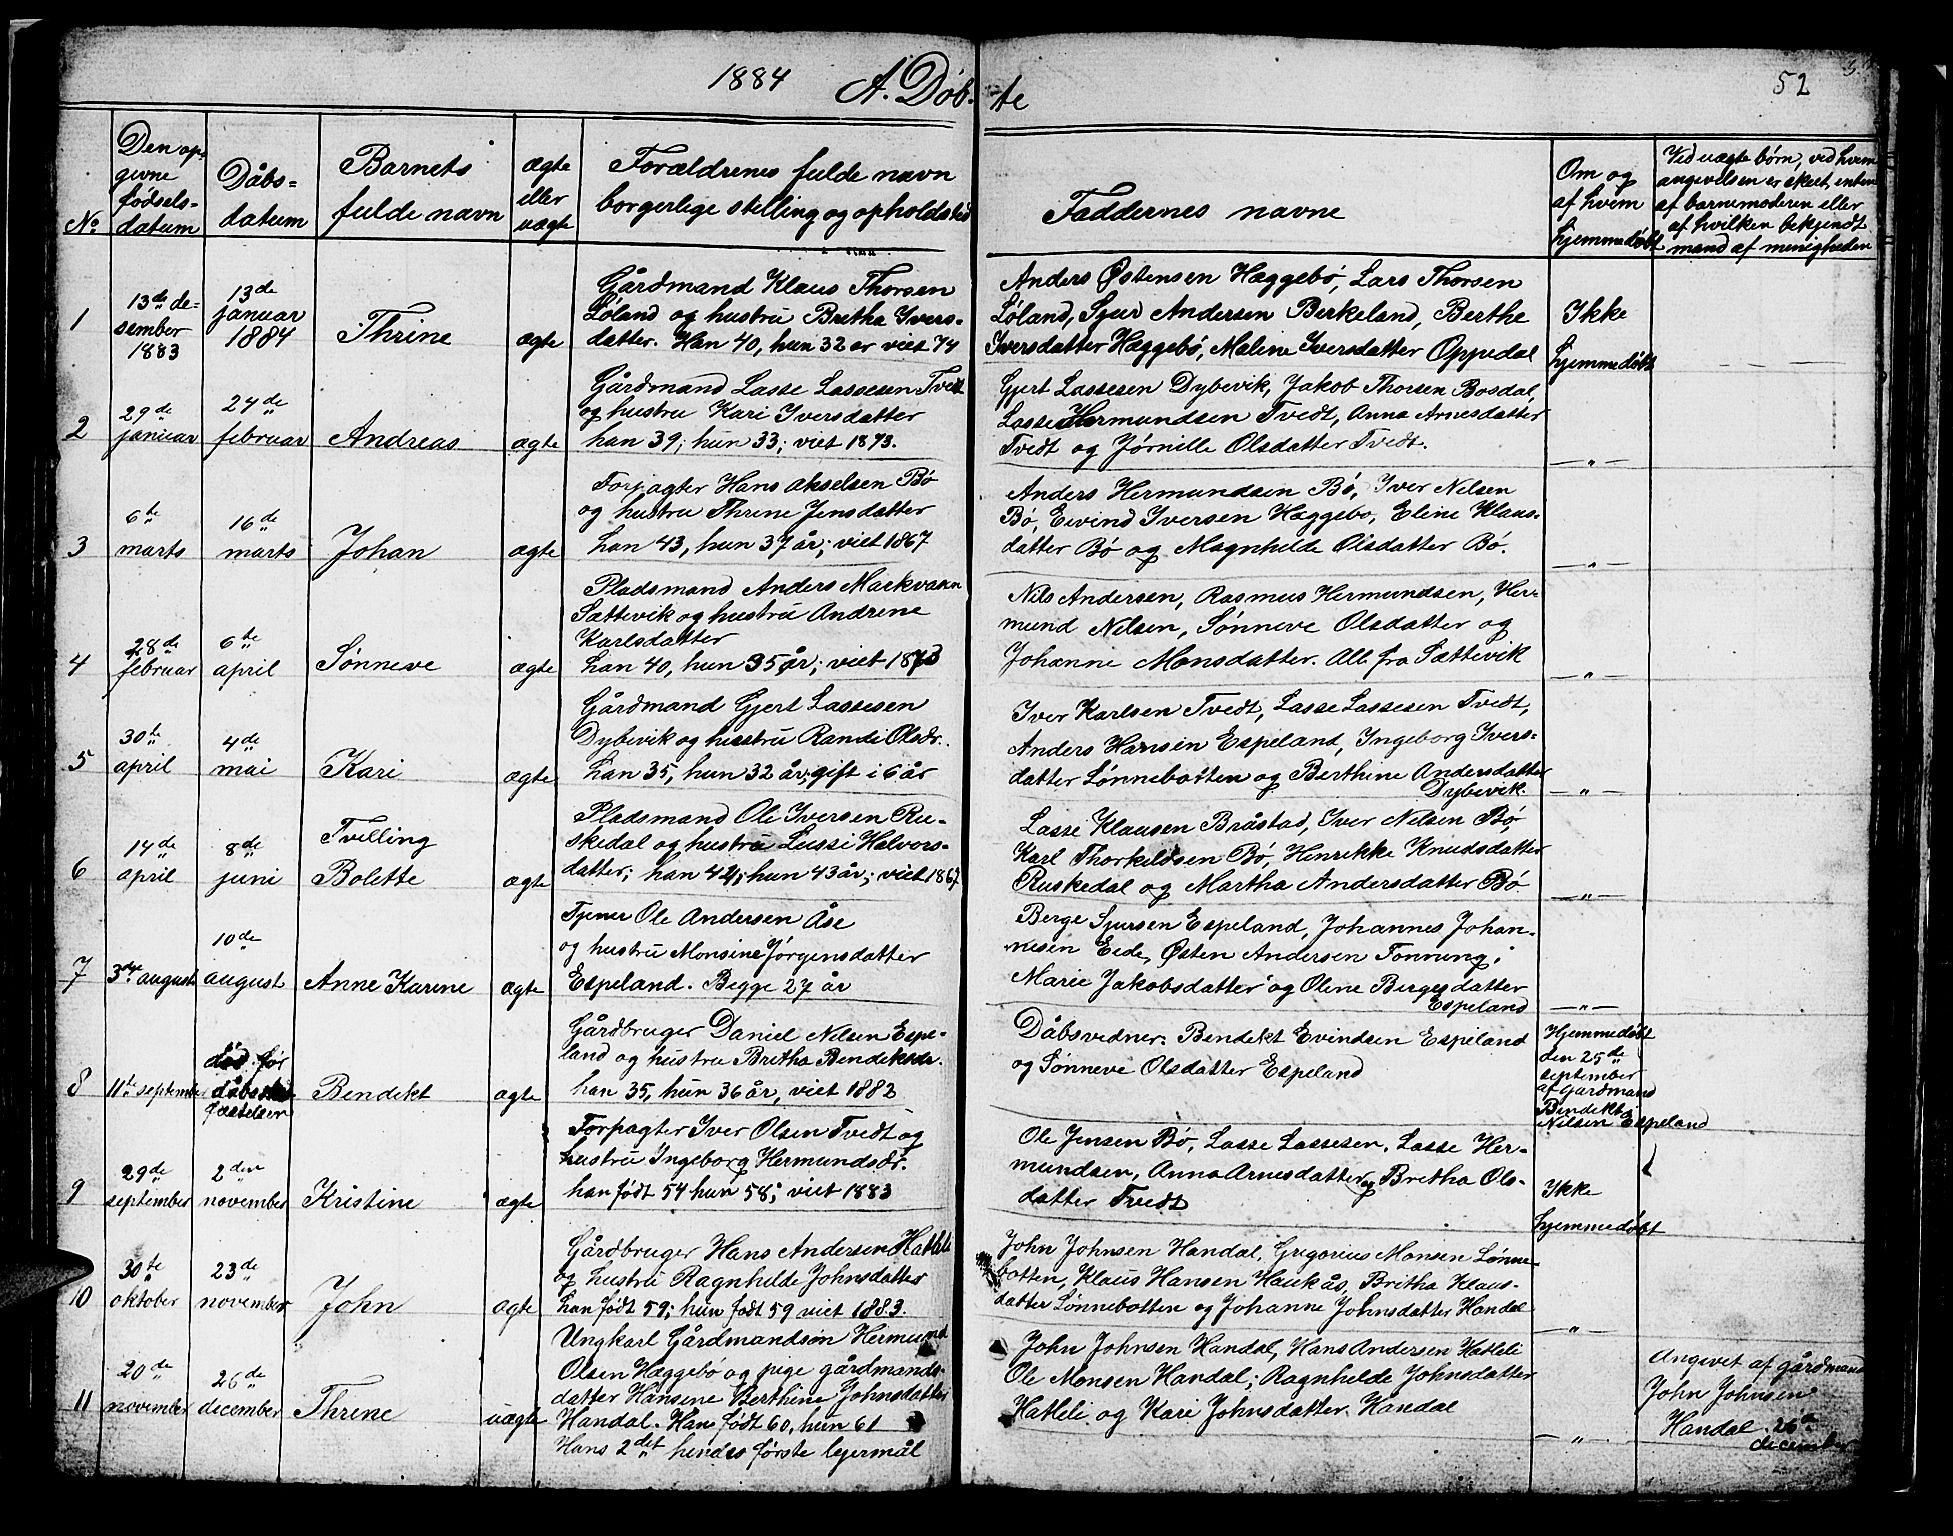 1884 A. Døb-te 52
No
Den op-
givne
fødsels-
datum
Dåbs-
datum
Barnets
fulde navn
ægte
eller
uægte
Forældrenes fulde navn
borgerlige stelling og opholdsted
Faddernes navne
Om og
af hvem
hjemmedøbt
Ved uægte børn, ved hvem
angivelsen er skeet, enten
af barnemoderen eller
af hvilken bekjendt
mand af menigheden
1
13de de-
sember
1883
13de
januar
1884
Thrine
ægte
Gårdmand Klaus Thorsen
Løland og hustru Bretha Ivers-
datter. Han 40, hun 32 år viet 74
Anders Østensen Hæggebø, Lars Thorsen
Løland, Sjur Andersen Berkeland, Berthe
Iversdatter Hæggebø, Maline Iversdatter Oppedal
Ikke
hjemmedøbt
2
29de
januar
24de
februar
Andreas
ægte
Gårdmand Lasse Lassesen Tvedt
og hustru Kari Iversdatter
han 39; hun 33; viet 1873.
Gjert Lassesen Dybevik, Jakob Thorsen Bosdal,
Lasse Hermundsen Tvedt, Anna Arnesdatter
Tvedt og Jørnille Olsdatter Tvedt.
—"—
3
6te
marts
16de
marts
Johan
ægte
Forpagter Hans Akselsen Bø
og hustru Thrine Jensdatter
han 43, hun 37 år; viet 1867
Anders Hermundsen Bø, Iver Nilsen
Bø, Eivind Iversen Hæggebø, Eline Klaus-
datter Bø og Magnhilde Olsdatter Bø.
—"—
4
28de
februar
6te
april
Sønneve
ægte
Pladsmand Anders Markvasen
Sættevik og hustru Andrene
Karlsdatter
han 40, hun 35 år; viet 1873
Nils Andersen, Rasmus Hermundsen, Her-
mund Nilsen, Sønneve Olsdatter og
Johanne Monsdatter. Alle fra Sættevik
—"—
5
30te
april
4de
mai
Kari
ægte
Gårdmand Gjert Lassesen
Dybevik og hustru Randi Olsdr.
han 35, hun 32 år, gift i 6 år
Iver Karlsen Tvedt, Lasse Lassesen Tvedt,
Anders Hansen Espeland, Ingeborg Ivers-
datter Lønnebotten og Berthine Andersdatter
Dybevik.
—"—
6
14de
april
8de
juni
Tvilling
Bolette
ægte
Pladsmand Ole Iversen Ru-
skedal og hustru Lussi Halvors-
datter; han 42; hun 43 år; viet 1867
Lasse Klausen Bråstad, Iver Nilsen Bø,
Karl Thorkildsen Bø, Henrikke Knudsdatter
Ruskedal og Martha Andersdatter Bø
—"—
7
3die august
10de
august
Anne Karine
ægte
Tjener Ole Andersen Åse
og hustru Monsine Jørgensdatter
Espeland. Begge 27 år
Berge Sjursen Espeland, Johannes Johan-
nesen Eide, Østen Andersen Tonning;
Marie Jakobsdatter og Oline Bergesdatter
Espeland
—"—
8
11te september
død før
dåbsstad-
fæstelsen
Bendekt
ægte
Gårdbruger Daniel Nilsen Espe-
land og hustru Bretha Bendeksdr.
han 35, hun 36 år, viet 1882
Dåbsvidner: Bendekt Evindsen Espeland
og Sønneve Olsdatter Espeland
Hjemmedøbt
den 25de
september
af Gårdmand
Bendekt
Nilsen Espeland
9
29de
september
2den
november
Kristine
ægte
Forpagter Iver Olsen Tvedt og
hustru Ingeborg Hermundsdr.
han født 54 hun 58; viet 1883
Ole Jensen Bø, Lasse Lassesen, Lasse Her-
mundsen, Anna Arnesdatter og Bretha Ols-
datter Tvedt
Ikke
hjemmedøbt
10
30te
oktober
23de
november
John
ægte
Gårdbruger Hans Andersen Hatleli
og hustru Ragnhilde Johnsdatter
han født 59; hun født 59 viet 1883.
John Johnsen Handal, Gregorius Monsen Lønne-
botten, Klaus Hansen Haukås, Britha Klaus-
datter Lønnebotten og Johanne Johnsdatter Handal
—"—
11
20de
november
26de
december
Thrine
uægte
Ungkarl Gårdmandsøn Hermund
Olsen Hæggebø og pige gårdmands-
datter Hansene Berthine Johnsdatter
Handal. Han født 60, hun 61
Hans 2det hendes første lejermål
John Johnsen Handal, Hans Andersen Hatleli
Ole Monsen Handal; Ragnhilde Johnsdatter
Hatleli og Kari Johnsdatter Handal
—"—
Angivet af gårdmand
John Johnsen
Handal 26de
december